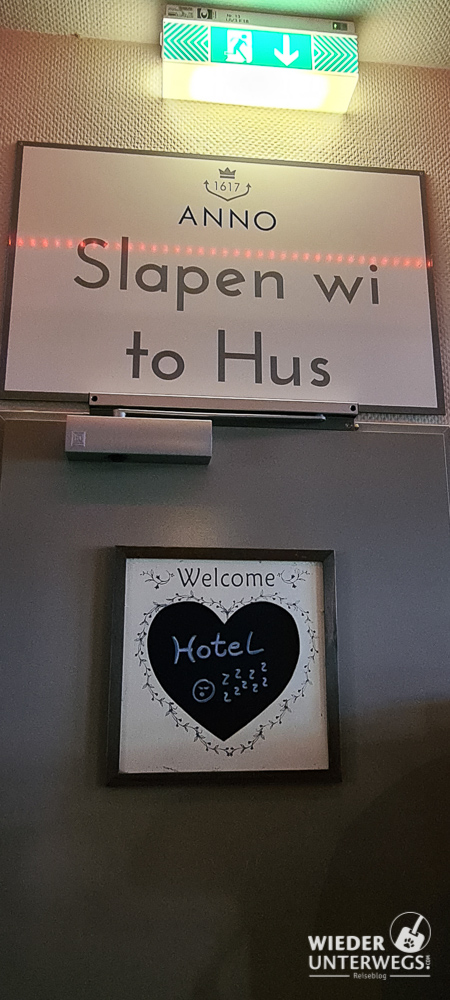 1617
ANNO
Slapen wi
to Hus
Welcome
Hotel
z z z z
z z z z z
WIEDER
UNTERWEGS.COM
Reiseblog